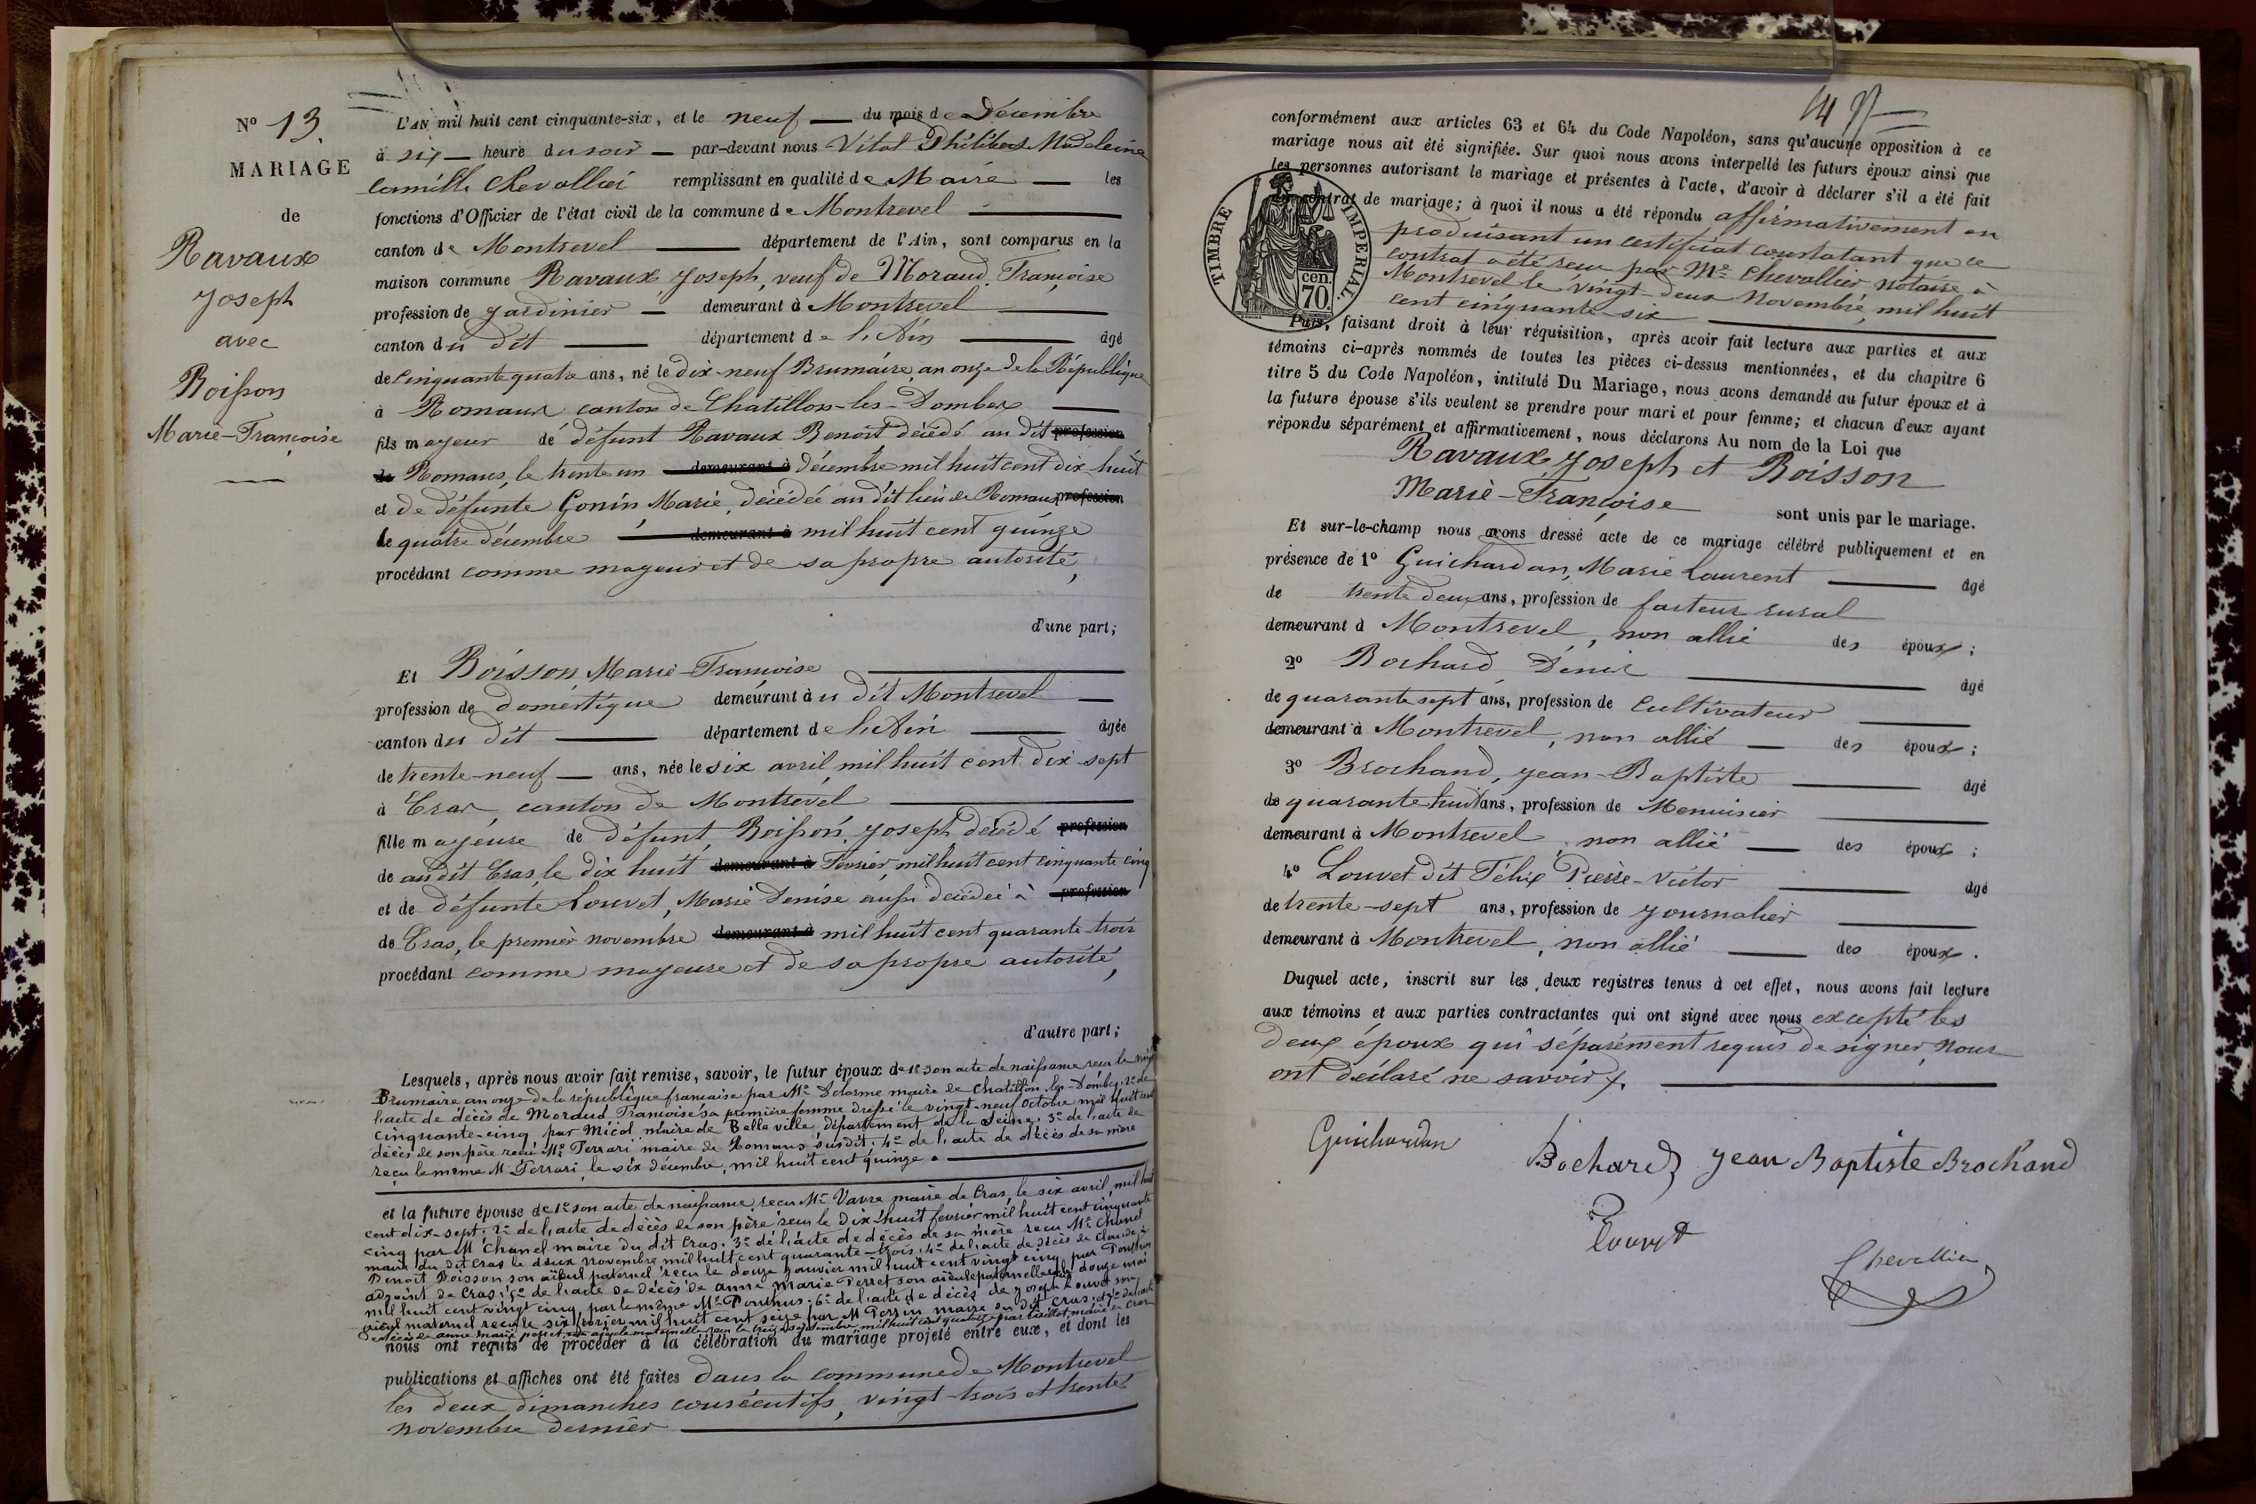 N° 13.
MARIAGE
de
Ravaux
Joseph
avec
Boisson
Marie-Françoise
L'AN mil huit cent cinquante-six, et le neuf du mois de Décembre
à six heure du soir par-devant nous Vital Philibert Madeleine
Camille Chevallier remplissant en qualité de Maire les
fonctions d'Officier de l'état civil de la commune de Montrevel
canton de Montrevel département de l'Ain, sont comparus en la
maison commune Ravaux Joseph, veuf de Moraud Françoise
profession de Jardinier demeurant à Montrevel
canton du dit département de l'Ain âgé
de cinquante quatre ans, né le dix-neuf Brumaire an onze de la République
à Romans canton de Chatillon-les-Dombes
fils mayeur de défunt Ravaux Benoit décédé au dit profession
de Romans, le trente un demeurant à décembre mil huit cent dix huit
et de défunte Gonin Marie, décédée au dit lieu de Romans profession
le quatre décembre demeurant à mil huit cent quinze
procédant comme mayeur et de sa propre autorité,
d'une part;
Et Boisson Marie-Françoise
profession de doméstique demeurant à u dit Montrevel
canton du dit département de l'Ain âgée
de trente-neuf ans, née le six avril mil huit cent dix sept
à Cras, canton de Montrevel
fille mayeure de défunt, Boisson Joseph décédé profession
de au dit Cras, le dix huit demeurant à Février, mil huit cent cinquante cinq
et de défunte Louvet, Marie Denise aussi décédée à profession
de Cras, le premier novembre demeurant à mil huit cent quarante trois
procédant comme mayeure et de sa propre autorité,
d'autre part;
Lesquels, après nous avoir fait remise, savoir, le futur époux de 1° son acte de naissance reçu le vingt
Brumaire an onze de la république française par Mr Delorme maire de Chatillon les-Dombes, 2° de
l'acte de décès de Moraud Françoise sa première femme dressé le vingt-neuf Octobre mil huit cent
cinquante-cinq par Micol maire de Belleville, département de la Seine; 3° de l'acte de
décès de son père reçu Mr Ferrari maire de Romans susdit; 4° de l'acte de décès de sa mère
reçu le même M Ferrari, le six décembre, mil huit cent quinze
et la future épouse de 1° son acte de naissance reçu Mr Vavre maire de Cras, le six avril, mil huit
cent dix-sept; 2° de l'acte de décès de son père reçu le dix-huit février mil huit cent cinquante
cinq par M Chanel maire du dit Cras; 3° de l'acte de décès de sa mère reçu Mr Chanel
maire du dit Cras le deux novembre mil huit cent quarante-trois; 4° de l'acte de décès de Claude
Benoit Boisson son aïeul paternel reçu le douze janvier mil huit cent vingt cinq par Ponthus
adjoint de Cras; 5° de l'acte de décès de anne marie Perret son aïeule paternelle du douze mai
mil huit cent vingt cinq, par le même Mr Ponthus; 6° de l'acte de décès de Joseph Louvet son
aïeul maternel reçu le six février mil huit cent seize par M Perrin maire du dit Cras; et 7° de l'acte
de décès de anne marie son aïeule maternelle septembre mil huit cent quatorze par maire de Cras
nous ont requis de procéder à la célébration du mariage projeté entre eux, et dont les
publications et affiches ont été faites dans la commune de Montrevel
les deux dimanches consécutifs, vingt-trois et trente
novembre dernier
conformément aux articles 63 et 64 du Code Napoléon, sans qu'aucune opposition à ce
mariage nous ait été signifiée. Sur quoi nous avons interpellé les futurs époux ainsi que
les personnes autorisant le mariage et présentes à l'acte, d'avoir à déclarer s'il a été fait
un contrat de mariage; à quoi il nous a été répondu affirmativement en
produisant un certificat constatant que ce
contrat a été reçu par Me Chevallier notaire à
Montrevel le vingt-deux Novembre, mil huit
cent cinquante six
TIMBRE IMPERIAL.
70 cen.
Puis, faisant droit à leur réquisition, après avoir fait lecture aux parties et aux
témoins ci-après nommés de toutes les pièces ci-dessus mentionnées, et du chapitre 6
titre 5 du Code Napoléon, intitulé Du Mariage, nous avons demandé au futur époux et à
la future épouse s'ils veulent se prendre pour mari et pour femme; et chacun d'eux ayant
répondu séparément et affirmativement, nous déclarons Au nom de la Loi que
Ravaux Joseph et Boisson
Marie-Françoise sont unis par le mariage.
Et sur-le-champ nous avons dressé acte de ce mariage célébré publiquement et en
présence de 1° Guichardan, Marie Laurent âgé
de trente deux ans, profession de facteur rural
demeurant à Montrevel, non allié des époux;
2° Bochard Denis âgé
de quarante sept ans, profession de Cultivateur
demeurant à Montrevel, non allié des époux;
3° Brochand, Jean-Baptiste âgé
de quarante huit ans, profession de Menuisier
demeurant à Montrevel, non allié des époux;
4° Louvet dit Félix Pierre-Victor âgé
de trente-sept ans, profession de Journalier
demeurant à Montrevel, non allié des époux.
Duquel acte, inscrit sur les deux registres tenus à cet effet, nous avons fait lecture
aux témoins et aux parties contractantes qui ont signé avec nous excepté les
deux époux qui séparément requis de signer, nous
ont déclaré ne savoir.
Guichardan
Bochard Jean Baptiste Brochand
Louvet
Chevallier